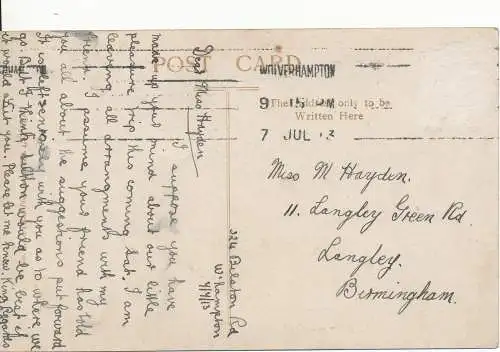 POST CARD
WOLVERHAMPTON
9 15 PM
7 JUL 13
The Address only to be
Written Here
Miss M Hayden.
11. Langley Green Rd
Langley.
Birmingham.
324 Bilston Rd
W'hampton
4/7/13
Dear Miss Hayden
I suppose you have
made up your mind about our little
pleasure trip this coming Sat. I am
leaving all arrangments with my
friend. I assume your friend has told
you all about the suggestions put forward
It is left entirely with you as to where we
go. But I think Sutton would be best if
it would suit you. Please let me know. Kind Regards